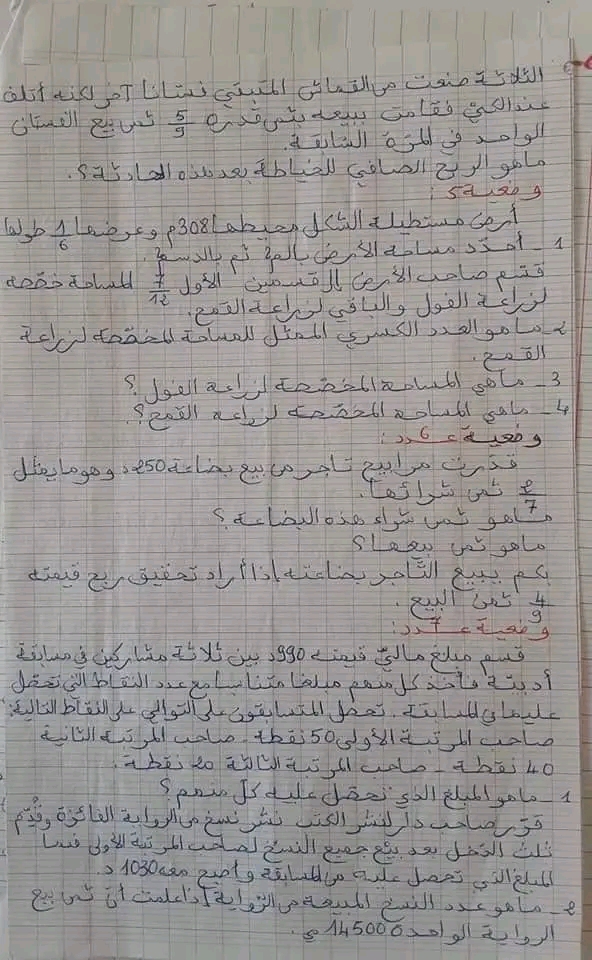 الثلاثة صنعت من القماش المتبقي فستانا آخر لكنه أتلف
عند الكيّ فقامت ببيعه بثمن قدره 5/9 ثمن بيع الفستان
الواحد في المرّة السّابقة.
ماهو الربح الصافي للخياطة بعد هذه الحادثة؟.
وضعية 5:
أرض مستطيلة الشكل محيطها 308م وعرضها 1/6 طولها
1 - أحدّد مساحة الأرض بالم² ثم بالدسم².
قسّم صاحب الأرض إلى قسمين الأول 7/12 المساحة خصّصه
لزراعة الفول والباقي لزراعة القمح.
2 - ماهو العدد الكسري الممثل للمساحة المخصّصة لزراعة
القمح.
3 - ماهي المساحة المخصّصة لزراعة الفول؟
4 - ماهي المساحة المخصّصة لزراعة القمح؟.
وضعية عــدد 6:
قدّرت مرابيح تاجر من بيع بضاعة 250د وهو ما يمثل
2/7 ثمن شرائها.
ماهو ثمن شراء هذه البضاعة؟
ماهو ثمن بيعها؟
بكم يبيع التّاجر بضاعته إذا أراد تحقيق ربح قيمته
4/9 ثمن البيع.
وضعية عــدد 7:
قسم مبلغ ماليّ قيمته 990د بين ثلاثة مشاركين في مسابقة
أدبيّة فأخذ كل منهم مبلغا متناسبا مع عدد النقاط التي تحصّل
عليها في المسابقة. تحصّل المتسابقون على التوالي على النقاط التالية:
صاحب المرتبة الأولى 50 نقطة - صاحب المرتبة الثانية
40 نقطة - صاحب المرتبة الثالثة 20 نقطة.
1 - ماهو المبلغ الذي تحصّل عليه كلّ منهم؟
قرّر صاحب دار لنشر الكتب نشر نسخ من الرواية الفائزة وقُدّم
ثلث الدّخل بعد بيع جميع النسخ لصاحب المرتبة الأولى فضمّ
المبلغ الذي تحصل عليه من المسابقة وأصبح معه 1030د.
2 - ماهو عدد النسخ المبيعة من الرّواية إذا علمت أنّ ثمن بيع
الرواية الواحدة 14500مي.